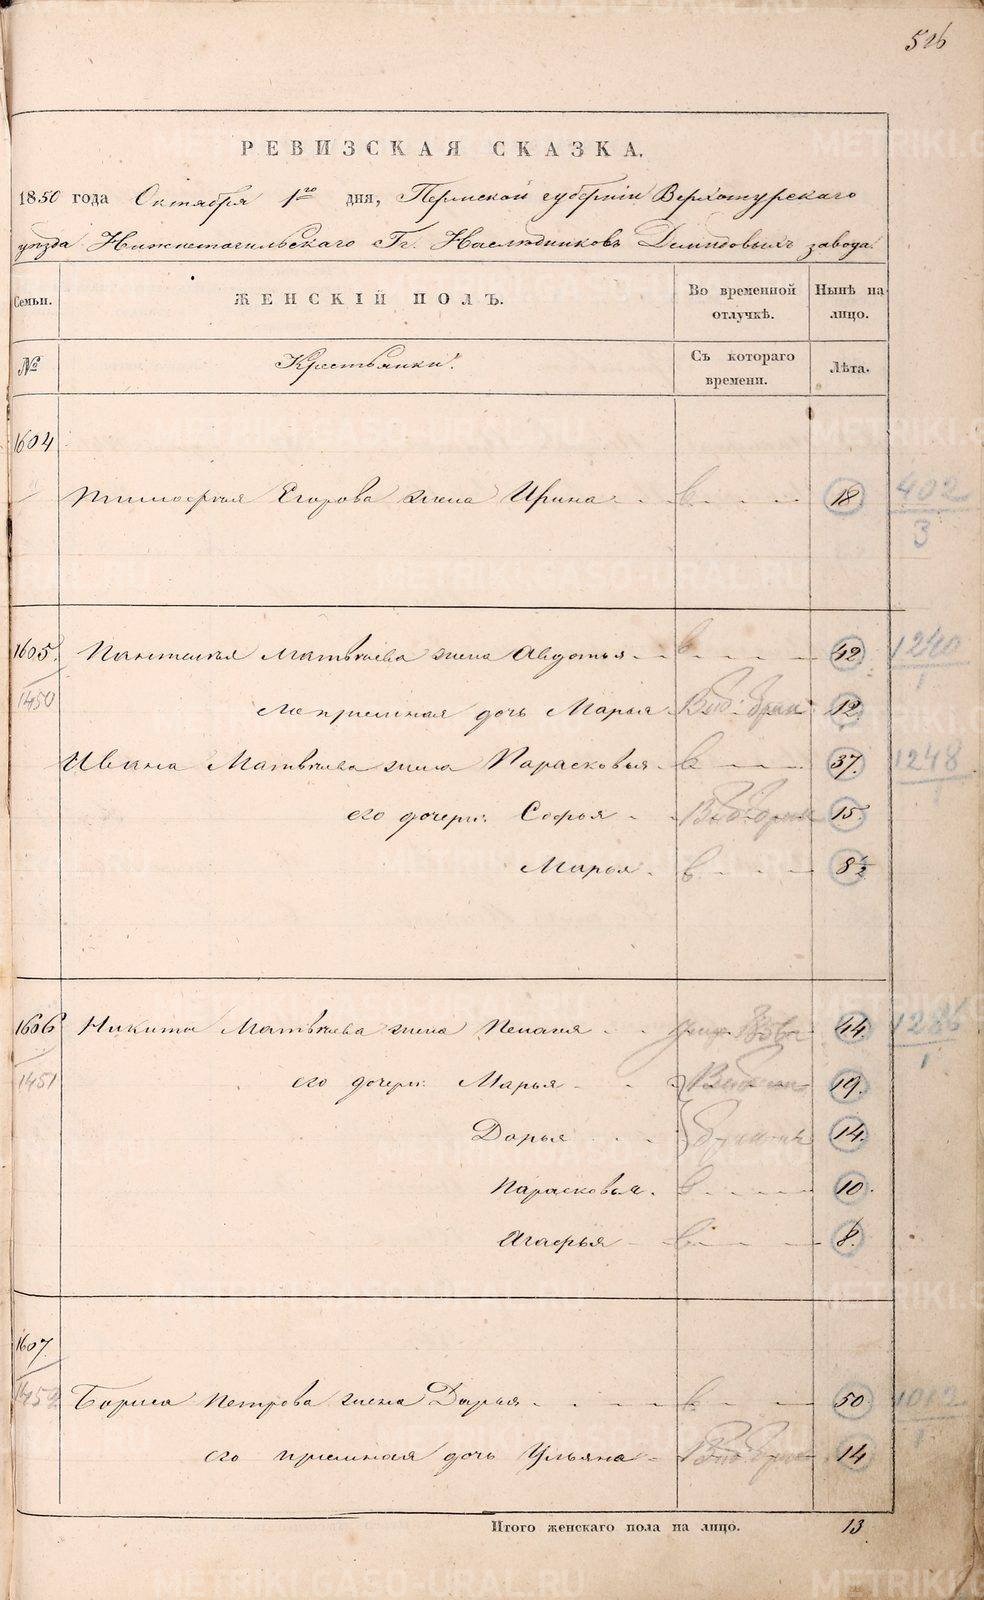 526
РЕВИЗСКАЯ СКАЗКА.
1850 года Октября 1го дня, Пермской губернiи Верхотурскаго
уѣзда Нижнетагильскаго Гг. Наслѣдниковъ Демидовыхъ завода.
Семьи. ЖЕНСКIЙ ПОЛЪ. Во временной отлучкѣ. Нынѣ на лицо.
№ Крестьянки. Съ котораго времени. Лѣта.
1604
Тимофея Егорова жена Ирина 18 402/3
1605. Пантелея Матвѣева жена Авдотья 42 1240/1
1450 его приемная дочь Марья 12
Ивана Матвѣева жена Парасковья 37. 1248/1
его дочери: Софья 15.
Марья 8 1/2
1606 Никиты Матвѣева жена Пелагея 44. 1286/1
1451 его дочери: Марья 19.
Дарья 14.
Парасковья. 10.
Агафья 8.
1607.
1452 Бориса Петрова жена Дарья 50. 1012/1
его приемная дочь Ульяна 14
Итого женскаго пола на лицо. 13
METRIKI.GASO-URAL.RU